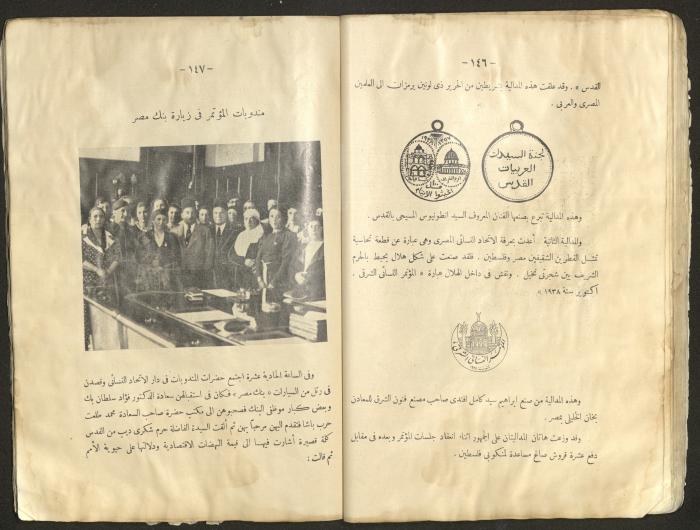 - ١٤٦ -
القدس » . وقد علقت هذه المدالية بشريطين من الحرير ذى لونين يرمزان الى العلمين
المصرى والعربى .
١٩٣٨ ١٣٥٧
لجنة السيدات
العربيات
القدس
وهذه المدالية تبرع بصنعها الفنان المعروف السيد انطونيوس المسيحى بالقدس .
والمدالية الثانية أعدت بمعرفة الاتحاد النسائى المصرى وهى عبارة عن قطعة نحاسية
تمثل القطرين الشقيقين مصر وفلسطين . فقد صنعت على شكل هلال يحيط بالحرم
الشريف بين شجرتى نخيل . ونقش فى داخل الهلال عبارة « المؤتمر النسائى الشرقى .
أكتوبر سنة ١٩٣٨ »
المؤتمر النسائى الشرقى
وهذه المدالية من صنع ابراهيم سيد كامل افندى صاحب مصنع فنون الشرق للمعادن
بخان الخليلى بمصر .
وقد وزعت هاتان المداليتان على الجمهور أثناء انعقاد جلسات المؤتمر وبعده فى مقابل
دفع عشرة قروش صاغ مساعدة لمنكوبى فلسطين .
- ١٤٧ -
مندوبات المؤتمر فى زيارة بنك مصر
وفى الساعة الحادية عشرة اجتمع حضرات المندوبات فى دار الاتحاد النسائى وقصدن
فى رتل من السيارات « بنك مصر » فكان فى استقبالهن سعادة الدكتور فؤاد سلطان بك
وبعض كبار موظفى البنك فصحبوهن الى مكتب حضرة صاحب السعادة محمد طلعت
حرب باشا فتقدم اليهن مرحبا بهن ثم ألقت السيدة الفاضلة حرم شكرى ديب من القدس
كلمة قصيرة أشارت فيها الى قيمة النهضات الاقتصادية ودلالتها على حيوية الأمم
ثم قالت :